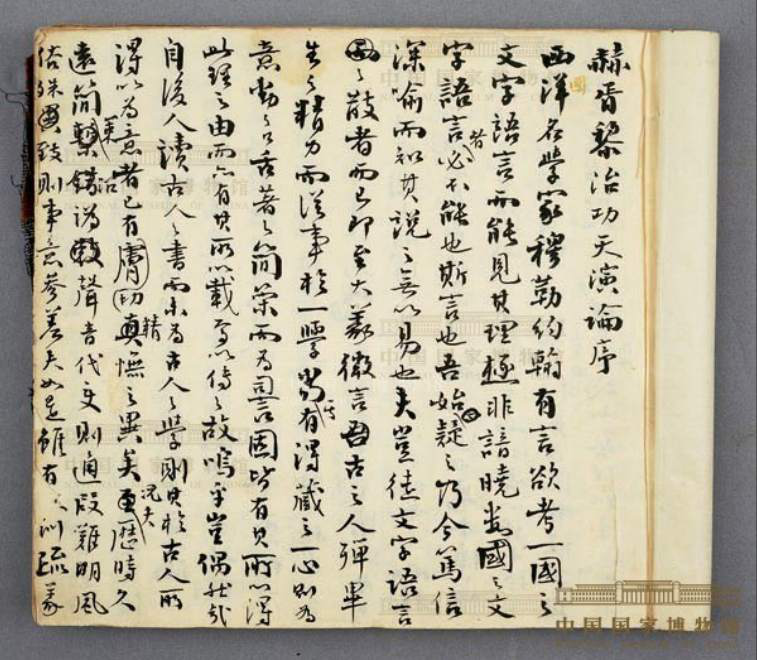 赫胥黎治功天演論序
西洋名學家穆勒約翰有言欲考一國之
文字語言而能見其理極非諳曉數國之文
字語言者必不能也斯言也吾始疑之乃今篤信
深喻而知其說之無以易也夫豈徒文字語言
之散者而已即至大義微言古之人殫畢
生之精力而從事於一學當其有得藏之一心則為
意動之口舌著之簡策而為詞固皆有其所以得
此理之由而亦有其所以載焉以傳之故嗚乎豈偶然哉
自後人讀古人之書而未為古人之學則其於古人所
得以為意者已有膚切精憮之異矣況夫歷時久
遠簡策沿訛聲音代變則通叚難明風
俗殊異致則事意參差夫如是雖有訓疏義
中国国家博物馆